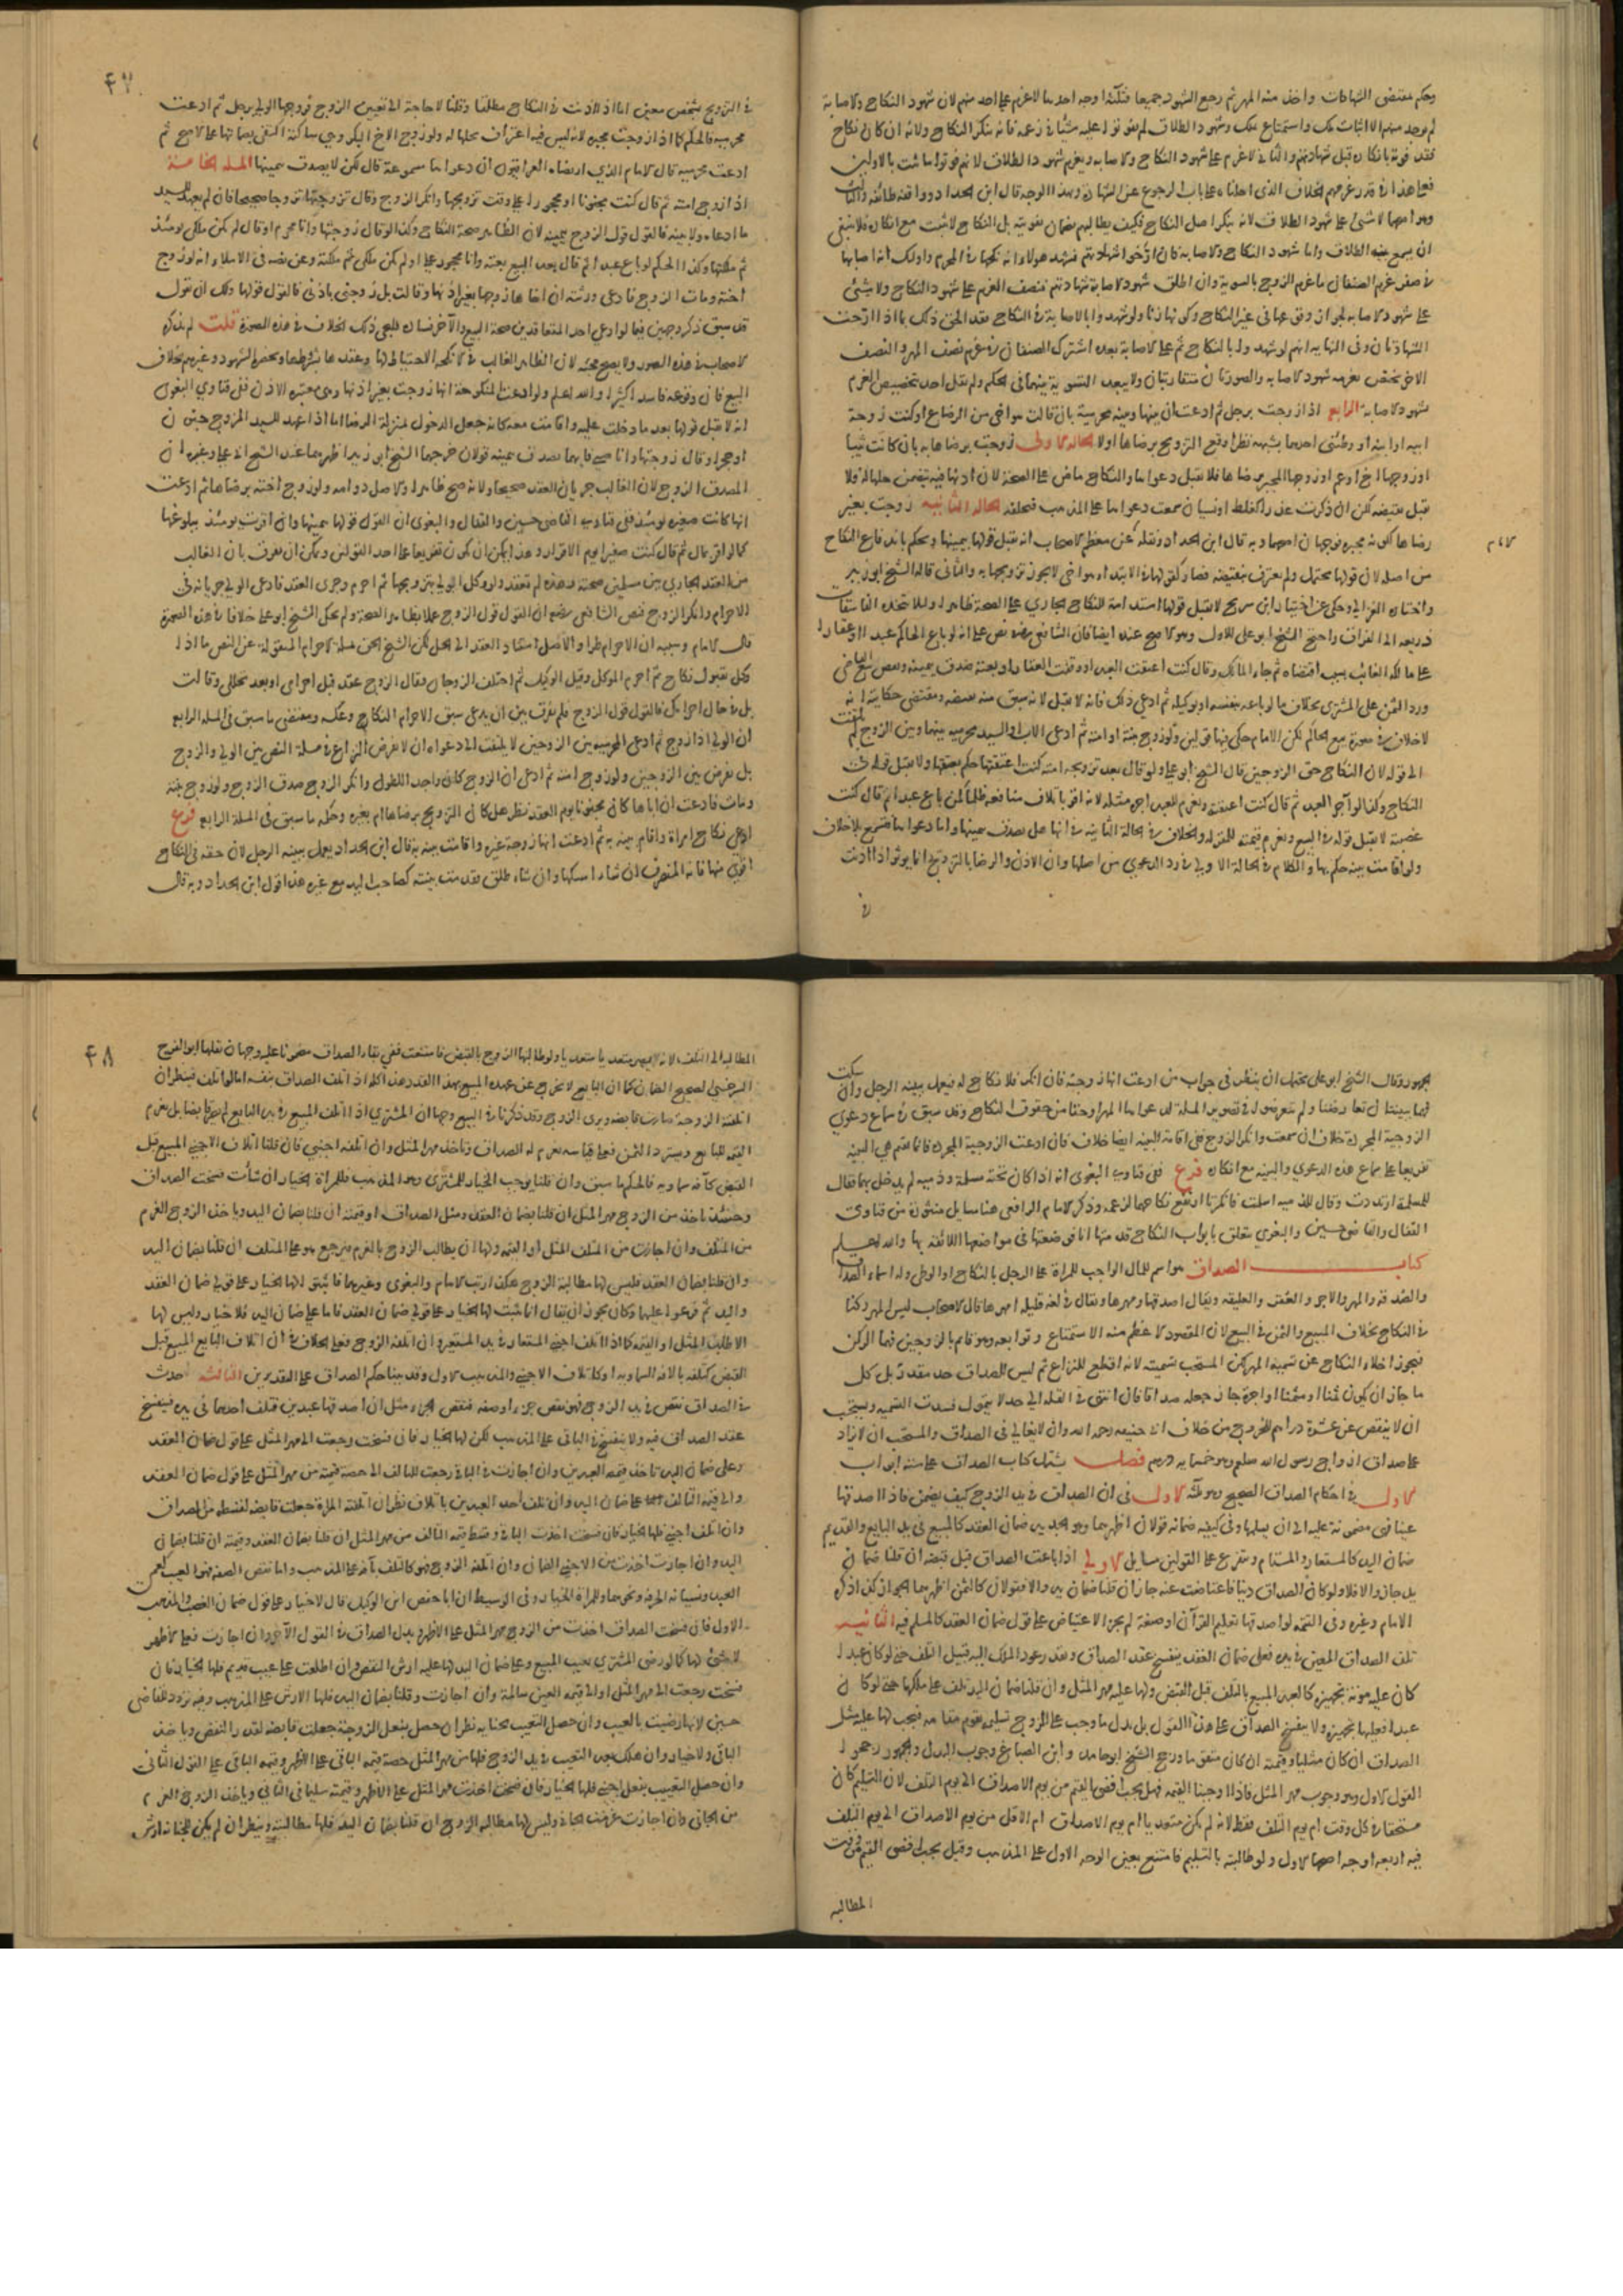 وحكم بمقتضى الشهادات واخذ منه المهر ثم رجع الشهود جميعا فثلثة اوجه احدها لا غرم على احد منهم لان شهود النكاح والاصابة
لم يوجد منهم الا اثبات ملك واستمتاع بملك وشهود الطلاق لم يفوتوا عليه شيئا في زعمه فانه منكر النكاح ولانه ان كان نكاح
فقد فوته بانكاره قبل شهادتهم والثاني لا غرم على شهود النكاح والاصابة ويغرم شهود الطلاق لانهم فوتوا ما ثبت بالاولين
فعلى هذا في قدر غرمهم الخلاف الذي احلناه على باب الرجوع عن الشهادة وبهذا الوجه قال ابن الحداد ووافقه طائفة والثالث
وهو اصحها لا شيء على شهود الطلاق لانه ينكر اصل النكاح فكيف يطالبهم بضمان تفويته بل النكاح لا يثبت مع انكاره فلا ينبغي
ان يسمع بينة الطلاق واما شهود النكاح والاصابة فان ارخوا شهادتهم فشهد هولاء انه نكحها في المحرم واولئك انه اصابها
في صفر غرم الصنفان ما غرم الزوج بالسوية وان اطلق شهود الاصابة شهادتهم فنصف الغرم على شهود النكاح ولا شيء
على شهود الاصابة لجواز وقوعها في غير النكاح وكونها زنا ولو شهدوا بالاصابة في النكاح فقد الحق ذلك بما اذا ارخت
الشهادتان وفي النهاية انهم لو شهدوا بالنكاح ثم على الاصابة بعده اشترك الصنفان في غرم نصف المهر والنصف
الاخر يختص بغرمه شهود الاصابة والصورتان متقاربتان ولا يبعد التسوية بينهما في الحكم ولم يقل احد بتخصيص الغرم
شهود الاصابة الرابع اذا زوجت برجل ثم ادعت ان بينها وبينه محرمية بان قالت هو اخي من الرضاع او كنت زوجة
ابيه او ابنه او وطئني احدهما بشبهة نظر اوقع التزويج برضاها او لا الحالة الاولى زوجت برضاها به بان كانت ثيبا
او زوجها الاخ او عم او زوجها المجبر برضاها فلا يقبل دعواها والنكاح ماض على الصحة لان اذنها فيه يتضمن حلها له فلا
يقبل نقيضه لكن ان ذكرت عذرا كغلط او نسيان سمعت دعواها على المذهب فتحلفه الحالة الثانية زوجت بغير
رضاها لكونه مجبرة فوجهان اصحهما وبه قال ابن الحداد ونقله عن معظم الاصحاب انه يقبل قولها بيمينها ويحكم باندفاع النكاح
من اصله لان قولها محتمل ولم يعترف بنقيضه فصار كقولها في الابتداء هو اخي لا يجوز تزويجها به والثاني قاله الشيخ ابو زيد
واختاره الغزالي وحكى عن اختيار ابن سريج لا يقبل قولها استدامة للنكاح الجاري على الصحة ظاهرا ولئلا تتخذه الفاسقات
ذريعة الى الفراق واحتج الشيخ ابو على للاول وهو الاصح عنده ايضا فان الشافعي رضه نص على انه لو باع الحاكم عبدا او عقارا
على مالكه الغائب بسبب اقتضاه ثم جاء المالك وقال كنت اعتقت العبد او وقفت العقار او بعته صدق بيمينه ونقض بيع القاضي
ورد الثمن على المشتري بخلاف ما لو باعه بنفسه او بوكيله ثم ادعى ذلك فانه لا يقبل لانه سبق منه نقيضه ومقتضى حكايته انه
لا خلاف في صورة بيع الحاكم لكن الامام حكى فيها قولين ولو زوج بنته او امته ثم ادعى الاب او السيد محرمية بينها وبين الزوج لم يلتفت
الى قوله لان النكاح حق الزوجين قال الشيخ ابو على ولو قال بعد تزويجه امته كنت اعتقتها حكم بعتقها ولا يقبل قوله في
النكاح وكذا لو آجر العبد ثم قال كنت اعتقته ويغرم للعبد اجرة مثله لانه اقر باتلاف منافعه ظلما كمن باع عبدا ثم قال كنت
غصبته لا يقبل قوله في البيع ويغرم قيمته للمقر له والخلاف في الحالة الثانية في انها هل تصدق بيمينها واما دعواها فتسمع بلا خلاف
ولو اقامت بينة حكم بها والكلام في الحالة الاولى في رد الدعوى من اصلها وان الاذن والرضا بالتزويج انما يوثر اذا اذنت
في
٤٧
في التزويج بشخص معين اما اذا اذنت في النكاح مطلقا وقلنا لا حاجة الى تعيين الزوج فزوجها الولي برجل ثم ادعت
محرمية فالحكم كما اذا زوجت مجبرة لانه ليس فيه اعتراف بحلها له ولو زوج الاخ البكر وهي ساكتة اكتفى بصماتها على الاصح ثم
ادعت محرمية قال الامام الذي ارتضاه العراقيون ان دعواها مسموعة قال لكن لا يصدق بيمينها المسئلة الخامسة
اذا زوج امته ثم قال كنت مجنونا او محجورا علي وقت تزويجها وانكر الزوج وقال تزوجتها تزوجا صحيحا فان لم يعهد للسيد
ما ادعاه ولا بينة فالقول قول الزوج بيمينه لان الظاهر صحة النكاح وكذا لو قال زوجتها وانا محرم او قال لم تكن ملكي يومئذ
ثم ملكتها وكذا الحكم لو باع عبدا ثم قال بعد البيع بعته وانا محجور علي او لم يكن ملكي ثم ملكته وعن نصه في الاملاء انه لو زوج
اخته ومات الزوج فادعى ورثته ان اخاها زوجها بغير اذنها وقالت بل زوجني باذني فالقول قولها ولك ان تقول
قد سبق ذكر وجهين فيما لو ادعى احد المتعاقدين صحة البيع والآخر فساده فليجئ ذلك الخلاف في هذه الصورة قلت لم يذكره
الاصحاب في هذه الصور ولا يصح مجيئه لان الظاهر الغالب في الانكحة الاحتياط لها وعقدها بشروطها وبحضرة الشهود وغيرهم بخلاف
البيع فان وقوعه فاسدا كثير والله اعلم ولو ادعت المنكوحة انها زوجت بغير اذنها وهي معتبرة الاذن ففي فتاوي البغوي
انه لا يقبل قولها بعد ما دخلت عليه واقامت معه كانه جعل الدخول بمنزلة الرضا اما اذا عهد للسيد المزوج جنون
او حجر او قال زوجتها وانا صبي فايهما يصدق بيمينه قولان خرجهما الشيخ ابو زيد اظهرهما عند الشيخ ابي علي وغيره ان
المصدق الزوج لان الغالب جريان العقد صحيحا ولانه صح ظاهرا والاصل دوامه ولو زوج اخته برضاها ثم ادعت
انها كانت صغيرة يومئذ ففي فتاوى القاضي حسين والقفال والبغوي ان القول قولها بيمينها وان اقرت يومئذ ببلوغها
كما لو اقر بمال ثم قال كنت صغيرا يوم الاقرار وهذا يمكن ان يكون تفريعا على احد القولين ويمكن ان يفرق بان الغالب
من العقد الجاري بين مسلمين صحته وهذه لم تعقد ولو وكل الولي بتزويجها ثم احرم وجرى العقد فادعى الولي جريانه في
الاحرام وانكر الزوج فنص الشافعي رضه ان القول قول الزوج عملا بظاهر الصحة ولم يحك الشيخ ابو علي خلافا في هذه الصورة
قال الامام وسببه ان الاحرام طرأ والاصل استناد العقد الى الحل لكن الشيخ الحق مسئلة الاحرام المنقولة عن النص ما اذا
وكل بقبول نكاح ثم احرم الموكل وقبل الوكيل ثم اختلف الزوجان فقال الزوج عقد قبل احرامي او بعد تحللي وقالت
بل في حال احرامك فالقول قول الزوج فلم يفرق بين ان يدعي سبق الاحرام النكاح وعكسه ومقتضى ما سبق في المسئلة الرابعة
ان الولي اذا زوج ثم ادعى المحرمية بين الزوجين لا يلتفت الى دعواه ان لا يفرض النزاع في مسئلة النص بين الولي والزوج
بل يفرض بين الزوجين ولو زوج امته ثم ادعى ان الزوج كان واجدا للطول وانكر الزوج صدق الزوج ولو زوج بنته
ومات فادعت ان اباها كان مجنونا يوم العقد نظر هل كان التزويج برضاها ام بغيره وحكمه ما سبق في المسئلة الرابعة فرع
ادعى نكاح امراة واقام بينة به ثم ادعت انها زوجة غيره واقامت بينة به قال ابن الحداد يعمل ببينة الرجل لان حقه في النكاح
اقوى منها فانه المتصرف ان شاء امسكها وان شاء طلق فقدمت بينته كصاحب اليد مع غيره هذا قول ابن الحداد وبه قال
الجمهور وقال الشيخ ابو على يحتمل ان ينظر في جواب من ادعت انها زوجته فان انكر فلا نكاح له فيعمل ببينة الرجل وان سكت
فهما بينتان تعارضتا ولم يتعرضوا في تصوير المسئلة لدعواها المهر او حقا من حقوق النكاح وقد سبق في سماع دعوى
الزوجية المجردة خلاف ان سمعت وانكر الزوج ففي اقامة البينة ايضا خلاف فان ادعت الزوجية المجردة فانما تقيم هي البينة
تفريعا على سماع هذه الدعوي والبينة مع انكاره فرع ففي فتاوى البغوي انه اذا كان تحته مسلمة وذمية لم يدخل بهما فقال
للمسلمة ارتددت وقال للذمية اسلمت فانكرتا ارتفع نكاحهما لزعمه وذكر الامام الرافعي هنا مسايل منثورة من فتاوى
القفال والقاضي حسين والبغوي تتعلق بابواب النكاح قدمتها انا فوضعتها في مواضعها اللائقة بها والله اعلم
كتاب الصداق هو اسم للمال الواجب للمراة على الرجل بالنكاح او الوطي وله اسماء الصداق
والصدقة والمهر والاجر والعقر والعليقة ويقال اصدقها ومهرها ويقال في لغة قليلة امهرها قال الاصحاب ليس المهر ركنا
في النكاح بخلاف المبيع والثمن في البيع لان المقصود الاعظم منه الاستمتاع وتوابعه وهو قايم بالزوجين فهما الركن
فيجوز اخلاء النكاح عن تسمية المهر لكن المستحب تسميته لانه اقطع للنزاع ثم ليس للصداق حد مقدر بل كل
ما جاز ان يكون ثمنا او مثمنا او اجرة جاز جعله صداقا فان انتهى في القلة الى حد لا يتمول فسدت التسمية ويستحب
ان لا ينقص عن عشرة دراهم للخروج من خلاف ابي حنيفة رحمه الله وان لا يغالي في الصداق والمستحب ان لا يزاد
على صداق ازواج رسول الله صلعم وهو خمسماية درهم فصل يشتمل كتاب الصداق على ستة ابواب
الاول في احكام الصداق الصحيح وهو ثلثة الاول في ان الصداق في يد الزوج كيف يضمن فاذا اصدقها
عينا فهي مضمونة عليه الى ان يسلمها وفي كيفية ضمانه قولان اظهرهما وهو الجديد ضمان العقد كالمبيع في يد البايع والقديم
ضمان اليد كالمستعار والمستام ويتفرع على القولين مسايل الاولى اذا باعت الصداق قبل قبضه ان قلنا ضمان
يد جاز والا فلا ولو كان الصداق دينا فاعتاضت عنه جاز ان قلنا ضمان يد والا فقولان كالثمن اظهرهما الجواز كذا ذكره
الامام وغيره وفي التتمة لو اصدقها تعليم القرآن او صنعة لم يجز الاعتياض على قول ضمان العقد كالمسلم فيه الثانية
تلف الصداق المعين في يده فعلى ضمان العقد ينفسخ عقد الصداق ويقدر عود الملك اليه قبيل التلف حتى لو كان عبدا
كان عليه مونة تجهيزه كالعبد المبيع بالتلف قبل القبض ولها عليه مهر المثل وان قلنا ضمان اليد تلف على ملكها حتى لو كان
عبدا فعليها تجهيزه ولا ينفسخ الصداق على هذا القول بل بدل ما وجب على الزوج تسليمه يقوم مقامه فيجب لها عليه مثل
الصداق ان كان مثليا وقيمته ان كان متقوما ورجح الشيخ ابو حامد وابن الصباغ وجوب البدل والجمهور رجحوا
القول الاول وهو وجوب مهر المثل فاذا اوجبنا القيمة فهل يجب اقصى القيم من يوم الاصداق الى يوم التلف لان التسليم كان
مستحقا في كل وقت ام يوم التلف فقط لانه لم يكن متعديا ام يوم الاصداق ام الاقل من يوم الاصداق الى يوم التلف
فيه اربعة اوجه اصحها الاول ولو طالبته بالتسليم فامتنع تعين الوجه الاول على المذهب وقيل يجب اقصى القيم من وقت
المطالبة
٤٨
المطالبة الى التلف لانه يصير متعديا ولو طالبها الزوج بالقبض فامتنعت ففي بقاء الصداق مضمونا عليه وجهان نقلهما ابو الفرج
السرخسي الصحيح الضمان كما ان البايع لا يخرج عن عهدة المبيع بهذا القدر هذا كله اذا تلف الصداق بنفسه اما لو اتلف فينظر ان
اتلفته الزوجة صارت قابضة وبرئ الزوج وقد ذكرنا في البيع وجها ان المشتري اذا اتلف المبيع في يد البايع لم يكن قابضا بل يغرم
القيمة للبايع ويسترد الثمن فعلى قياسه تغرم له الصداق وتاخذ مهر المثل وان اتلفه اجنبي فان قلنا اتلاف الاجنبي المبيع قبل
القبض كآفة سماوية فالحكم ما سبق وان قلنا يوجب الخيار للمشتري وهو المذهب فللمراة الخيار ان شأت فسخت الصداق
وحينئذ تاخذ من الزوج مهر المثل ان قلنا بضمان العقد ومثل الصداق او قيمته ان قلنا بضمان اليد وياخذ الزوج الغرم
من المتلف وان اجازت تاخذ من المتلف المثل او القيمة ولها ان يطالب الزوج بالغرم فيرجع هو على المتلف ان قلنا بضمان اليد
وان قلنا بضمان العقد فليس لها مطالبة الزوج هكذا رتب الامام والبغوي وغيرهما فاثبتوا لها الخيار على قولي ضمان العقد
واليد ثم فرعوا عليهما وكان يجوز ان يقال انما يثبت لها الخيار على قول ضمان العقد فاما على ضمان اليد فلا خيار وليس لها
الا طلب المثل او القيمة كما اذا اتلف اجنبي المستعار في يد المستعير وان اتلفه الزوج فعلى الخلاف في ان اتلاف البايع المبيع قبل
القبض كتلفه بالآفة السماوية او كاتلاف الاجنبي والمذهب الاول وقد بينا حكم الصداق على التقديرين الثالثة حدث
في الصداق نقص في يد الزوج فهو نقص جزء او صفة فنقص الجزء مثل ان اصدقها عبدين فتلف احدهما في يده فينفسخ
عقد الصداق فيه ولا ينفسخ في الباقي على المذهب لكن لها الخيار فان فسخت رجعت الى مهر المثل على قول ضمان العقد
وعلى ضمان اليد تاخذ قيمة العبدين وان اجازت في الباقي رجعت للتالف الى حصة قيمته من مهر المثل على قول ضمان العقد
والى قيمة التالف على ضمان اليد وان تلف احد العبدين باتلاف نظر ان اتلفته المراة جعلت قابضة لقسطه من الصداق
وان اتلفه اجنبي فلها الخيار فان فسخت اخذت الباقي وقسط قيمة التالف من مهر المثل ان قلنا بضمان العقد وقيمته ان قلنا بضمان
اليد وان اجازت اخذت من الاجنبي الضمان وان اتلفه الزوج فهو كالتلف بآفة على المذهب واما نقص الصفة فهو العيب كعمى
العبد ونسيانه الحرفة ونحوها وللمراة الخيار وفي الوسيط ان ابا حفص ابن الوكيل قال لا خيار على قول ضمان الغصب والمذهب
الاول فان فسخت الصداق اخذت من الزوج مهر المثل على الاظهر وبدل الصداق في القول الآخر وان اجازت فعلى الاظهر
لا شيء لها كما لو رضي المشتري بعيب المبيع وعلى ضمان اليد لها عليه ارش النقص وان اطلعت على عيب قديم فلها الخيار فان
فسخت رجعت الى مهر المثل او الى قيمة العين سالمة وان اجازت وقلنا بضمان اليد فلها الارش على المذهب وفيه تردد للقاضي
حسين لانها رضيت بالعيب وان حصل التعيب بجناية نظر ان حصل بفعل الزوجة جعلت قابضة لقدر النقص وياخذ
الباقي ولا خيار وان هلك بعد التعيب في يد الزوج فلها من مهر المثل حصة قيمة الباقي على الاظهر وقيمة الباقي على القول الثاني
وان حصل التعييب بفعل اجنبي فلها الخيار فان فسخت اخذت مهر المثل على الاظهر وقيمته سليما في الثاني وياخذ الزوج الغرم
من الجاني وان اجازت غرمت الجاني وليس لها مطالبة الزوج ان قلنا بضمان اليد فلها مطالبته وينظر ان لم يكن للجناية ارش